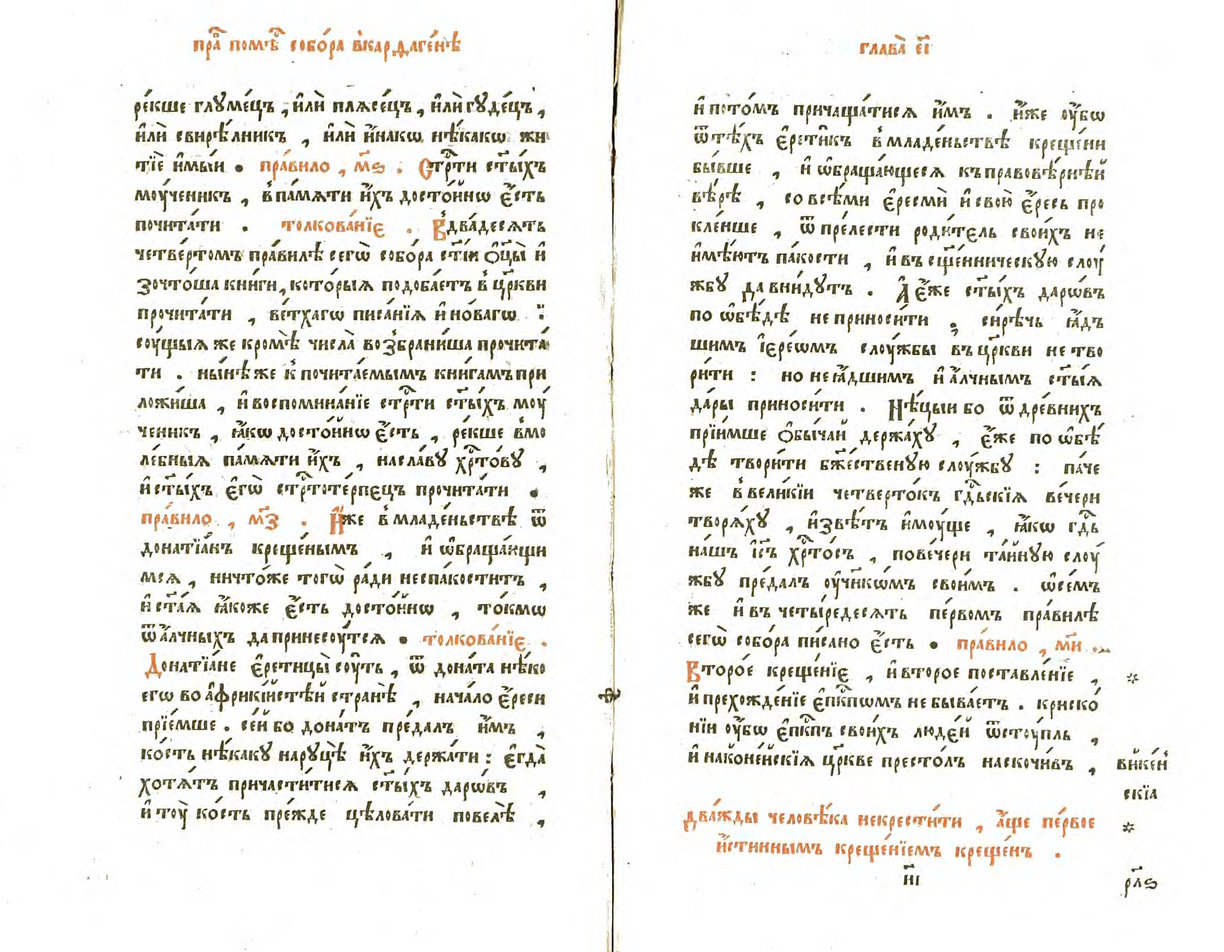 пра҇ помѣ҇ собо́ра вкарѳаге́нѣ
ре́кше глꙋме́цъ , и҆лѝ плѧсе́цъ , и҆лѝ гꙋде́цъ ,
и҆лѝ свирѣ́лникъ , и҆лѝ и҆на́кѡ нѣ́какѡ жи
тїѐ и҆мы́и • пра́вило , м҃ѕ . Стрⷭ҇ти ст҃ы́хъ
моу́ченикъ , впа́мѧти и҆́хъ досто́йнѡ є҆́сть
почита́ти . толкова́нїє . Вдва́десѧть
четве́ртомъ пра́вилѣ сегѡ̀ собо́ра ст҃і́и ѻ҆ц҃ы̀ и҆
зочто́ша кни́ги , кото́рыѧ подоба́етъ в цр҃кви
прочита́ти , ве́тхагѡ писа́нїѧ и҆ но́вагѡ :
соу́щыѧ же кромѣ̀ числа̀ возбрани́ша прочита́
ти . ны́нѣ же к почита́емымъ кни́гамъ при
ложи́ша , и҆ воспомина́нїе стрⷭ҇ти ст҃ы́хъ моу́
ченикъ , ꙗ҆́кѡ досто́йнѡ є҆́сть , ре́кше вмо
ле́бныѧ па́мѧти и҆́хъ , насла́вꙋ хрⷭ҇то́вꙋ ,
и҆ ст҃ы́хъ є҆гѡ̀ стрⷭ҇тоте́рпецъ прочита́ти •
пра́вило , м҃з . И҆́же в младе́ньствѣ ѿ
донатїа́нъ креще́нымъ , и҆ ѡ҆браща́ющи
мсѧ , ничто́же тогѡ̀ ра́ди неспа́коститъ ,
и҆ ст҃а́ѧ ꙗ҆́коже є҆́сть досто́йнѡ , то́кмѡ
ѿ а҆́лчныхъ да принесоу́тсѧ • толкова́нїє .
Донатїа́не є҆ретицы̀ соу́ть , ѿ дона́та нѣ́ко
егѡ во а҆фрикі́йстѣй странѣ̀ , нача́ло є҆́реси
прїе́мше . се́й бо дона́тъ пре́далъ и҆́мъ ,
ко́сть нѣ́какꙋ на рꙋцѣ̀ и҆́хъ держа́ти : є҆гда̀
хотѧ́тъ причасти́тисѧ ст҃ы́хъ даро́въ ,
и҆ тоу̀ ко́сть пре́жде цѣлова́ти повелѣ̀ ,
глава̀ є҃і
и҆ пото́мъ причаща́тисѧ и҆́мъ . и҆̀же оу҆́бѡ
ѿ тѣ́хъ є҆рети́къ в младе́ньствѣ креще́ни
бы́вше , и҆ ѡ҆браща́ющесѧ къ правовѣ́рнѣй
вѣ́рѣ , со всѣ́ми є҆ресмѝ и҆ свою̀ є҆́ресь про
кле́нше , ѿ пре́лести роди́тель свои́хъ не
и҆мѣ́ютъ па́кости , и҆ въ сщ҃е́нническꙋю слоу́
жбꙋ да вни́дꙋтъ . А є҆́же ст҃ы́хъ даро́въ
по ѡ҆бѣ́дѣ не приноси́ти , си́рѣчь ꙗ҆́дъ
шимъ і҆ере́ѡмъ слоу́жбы въ цр҃кви не тво
ри́ти : но не ꙗ҆́дшимъ и҆ а҆́лчнымъ ст҃ы́ѧ
да́ры приноси́ти . Нѣ́цыи бо ѿ дре́внихъ
прїи́мше ѻ҆бы́чай держа́хꙋ , є҆́же по ѡ҆бѣ́
дѣ твори́ти бж҃е́ственꙋю слоу́жбꙋ : па́че
же в вели́кїи четверто́къ гдⷭ҇ьскїѧ ве́чери
творѧ́хꙋ , и҆звѣ́тъ и҆моу́ще , ꙗ҆́кѡ гдⷭ҇ь
на́шъ і҆с҃ъ хрⷭ҇то́съ , по ве́чери та́йнꙋю слоу́
жбꙋ пре́далъ оу҆ч҃нкѡ́мъ свои́мъ . ѡ҆ се́мъ
же и҆ въ четы́редесѧть пе́рвомъ пра́вилѣ
сегѡ̀ собо́ра пи́сано є҆́сть • пра́вило , м҃и .
Второ́е креще́нїє , и҆ второе поставле́нїе , *
и҆ прехожде́нїе є҆пⷭ҇кпомъ не быва́етъ . криско́
нїи оу҆́бѡ є҆пⷭ҇кпъ свои́хъ люде́й ѿстоу́пль ,
и҆ наконе́йскїѧ цр҃кве престо́лъ наскочи́въ , вике́й
скїа
два́жды человѣ́ка некрести́ти , а҆́ще пе́рвое *
и҆́стиннымъ креще́нїемъ креще́нъ .
н҃і
рл҃ѕ